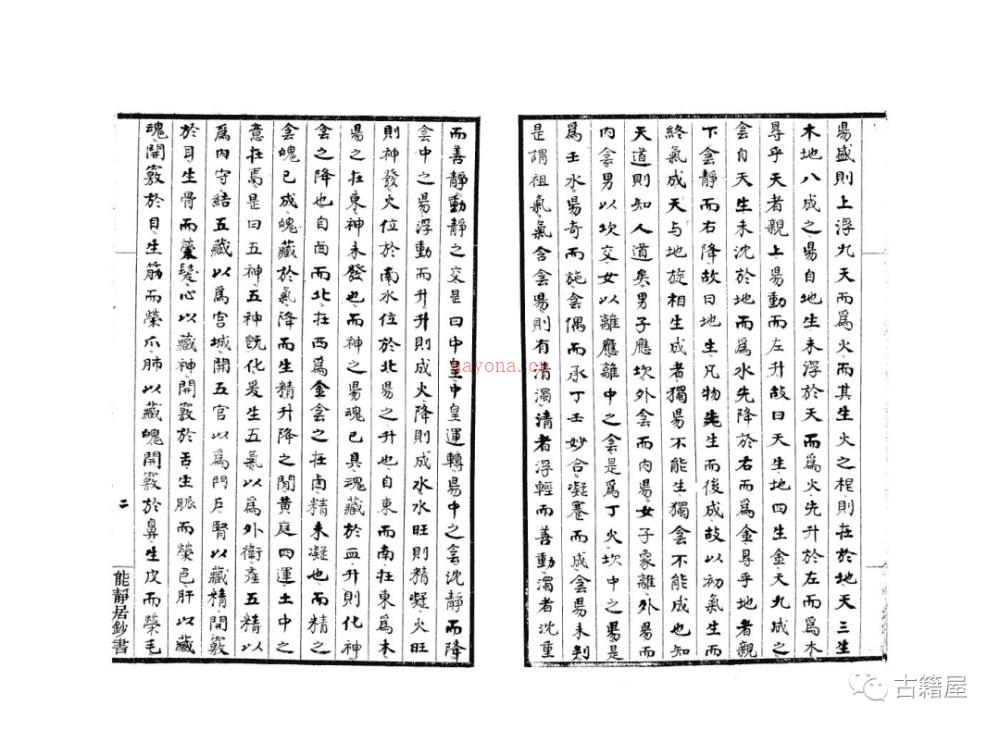 昜盛則上浮九天而爲火而其生火之根則在於地天三生
木地八成之昜自地生未浮於天而爲火先升於左而爲木
尋乎天者親上昜動而左升故曰天生地四生金天九成之
侌自天生未沈於地而爲水先降於右而爲金尋乎地者親
下侌靜而右降故曰地生凡物先生而後成故以初氣生而
終氣成天與地旋相生成者獨昜不能生獨侌不能成也知
天道則知人道矣男子應坎外侌而内昜女子象離外昜而
内侌男以坎交女以離應離中之侌是爲丁火坎中之昜是
爲壬水昜奇而施侌偶而承丁壬妙合凝蹇而成侌昜未判
是謂祖氣氣含侌昜則有清濁清者浮輕而善動濁者沈重
而善靜動靜之交是曰中皇中皇運轉昜中之侌沈靜而降
侌中之昜浮動而升升則成火降則成水水旺則精凝火旺
則神發火位於南水位於北昜之升也自東而南在東爲木
昜之在東神未發也而神之昜魂已具魂藏於血升則化神
侌之降也自酉而北在西爲金侌之在酉精未凝也而精之
侌魄已成魄藏於氣降而生精升降之閒黄庭四運土中之
意在焉是曰五神五神旣化爰生五氣以爲外衛產五精以
爲内守結五藏以爲宫城開五官以爲門户腎以藏精開竅
於耳生骨而榮髮心以藏神開竅於舌生脈而榮色肝以藏
魂開竅於目生筋而榮爪肺以藏魄開竅於鼻生皮而榮毛
二
能靜居鈔書
gayona.cn
古籍屋